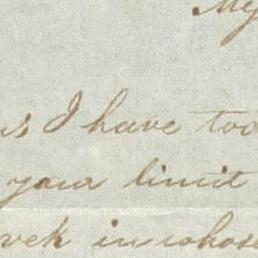 My
as I have too
your limit
in whose